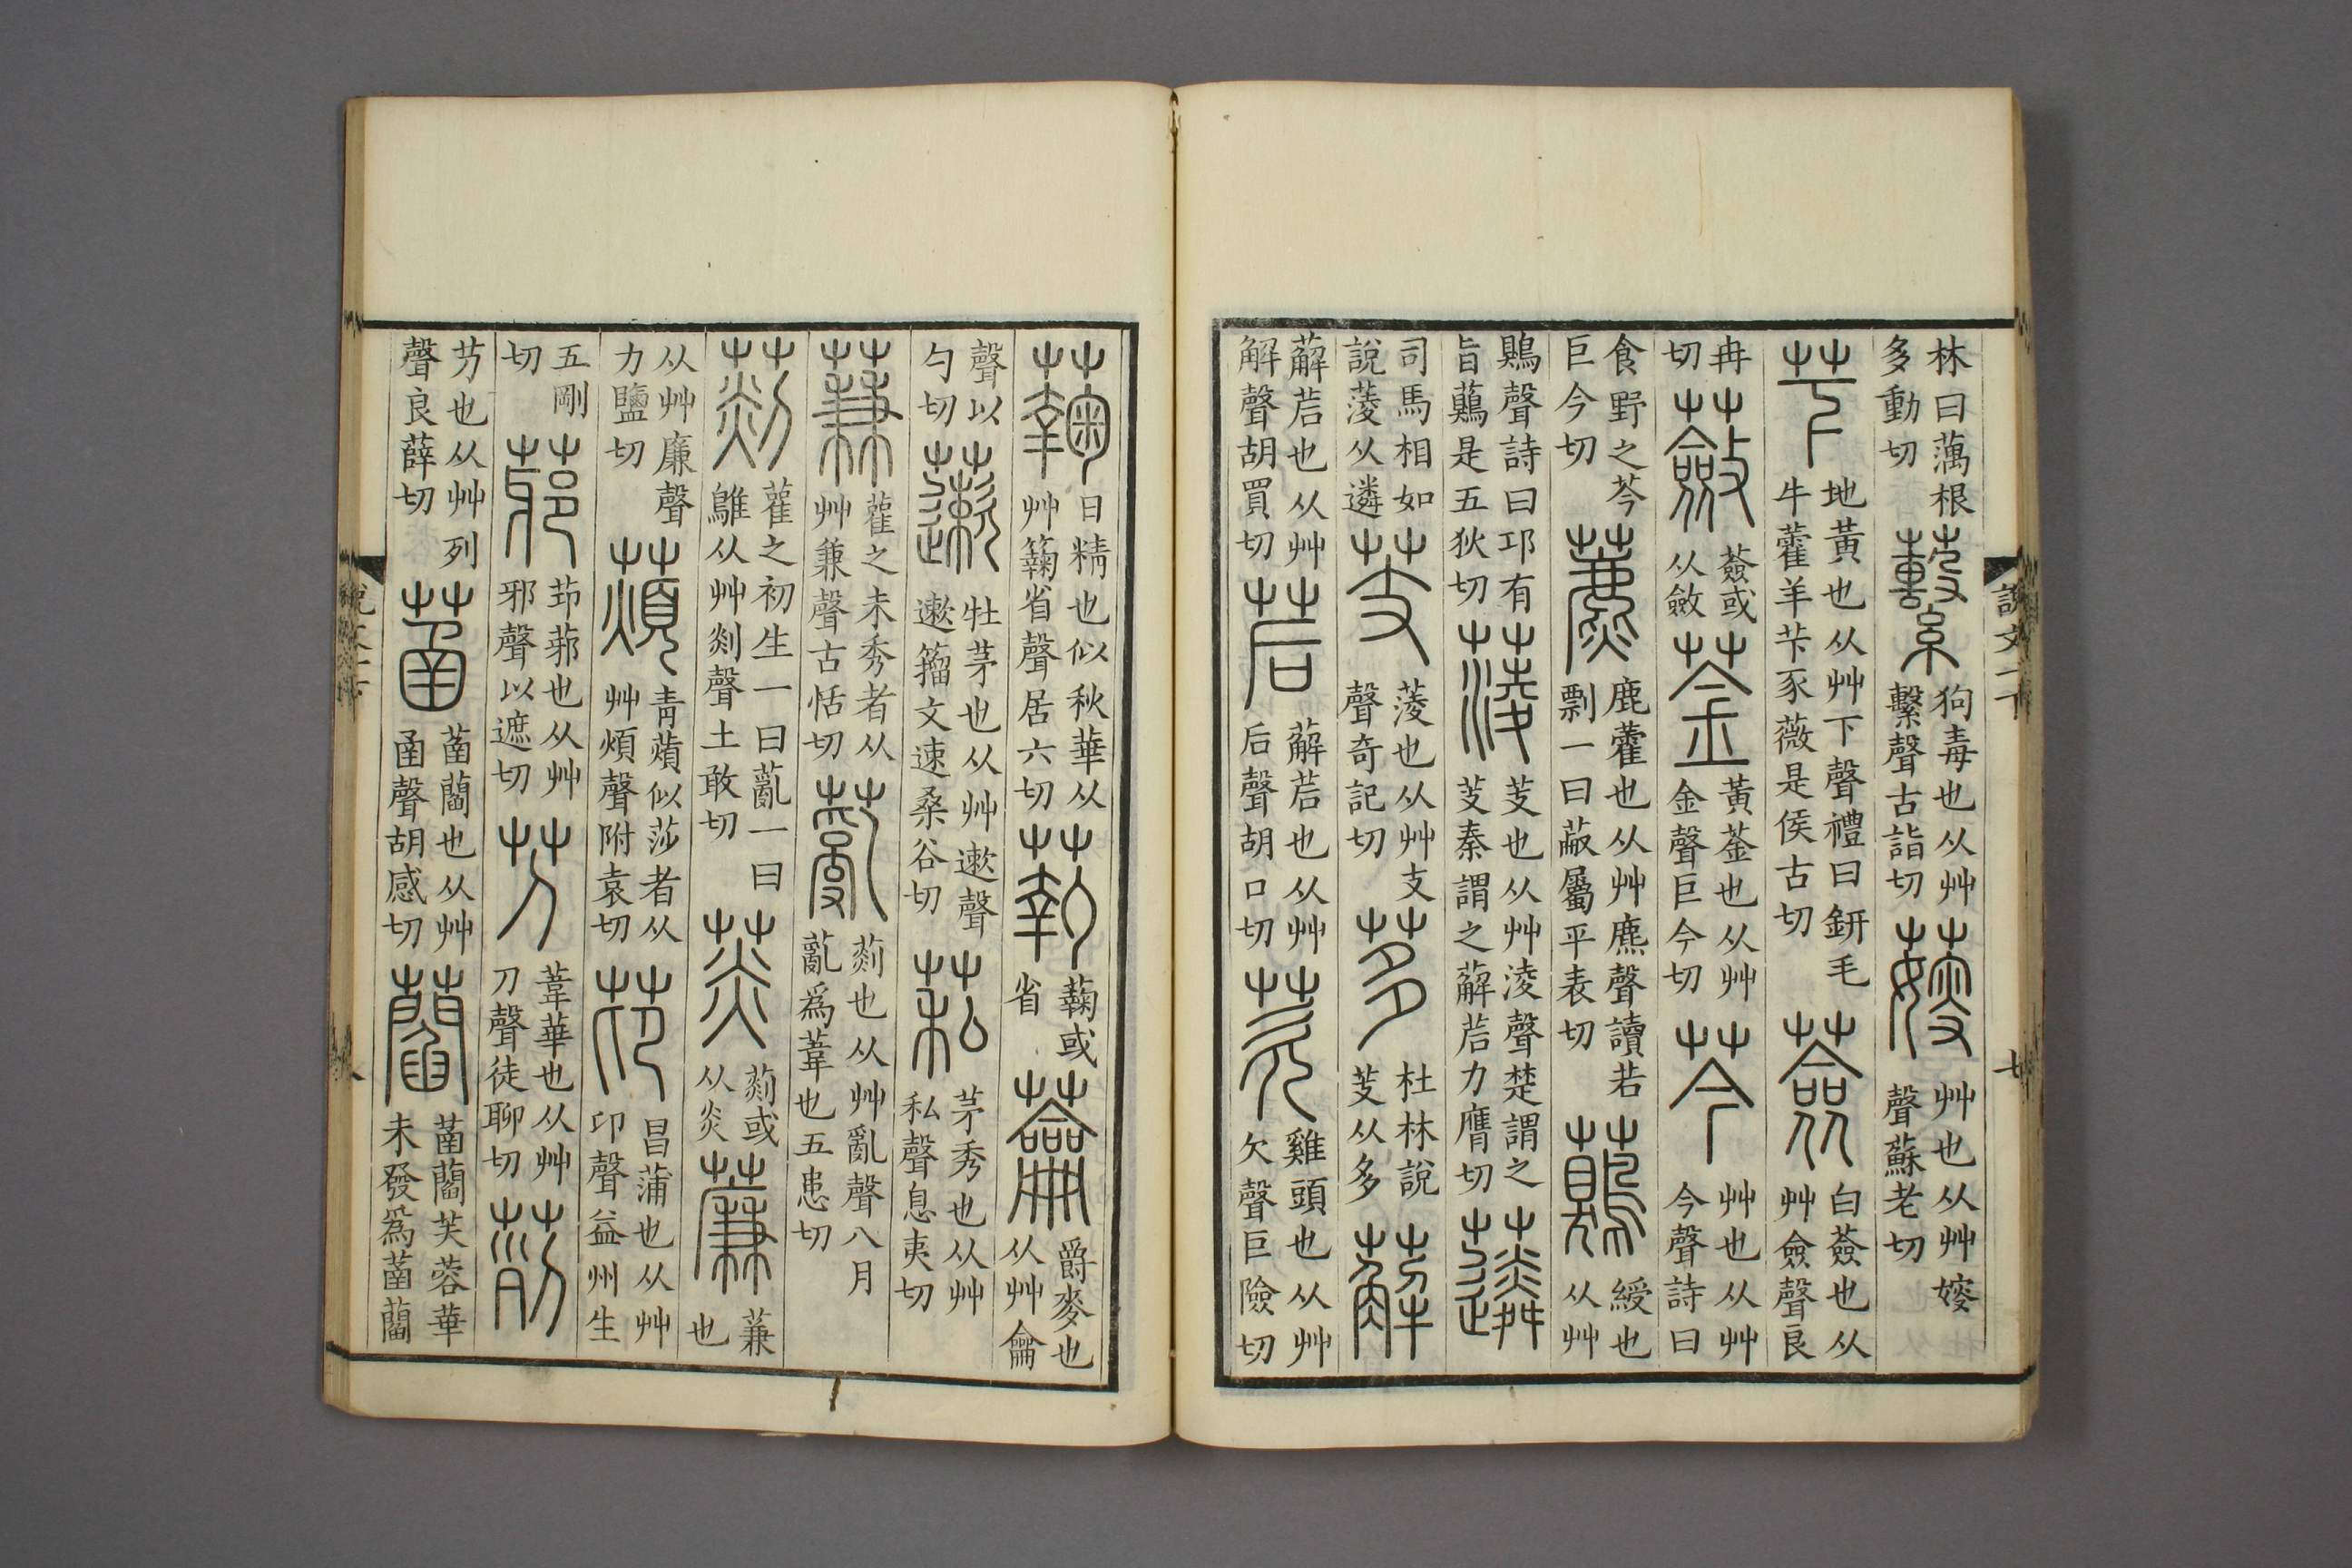 說文一下
七
林曰藕根多動切蘻狗毒也从艸繫聲古詣切䕅艸也从艸嫂聲蘇老切
芐地黃也从艸下聲禮曰鈃毛牛藿羊芐豕薇是侯古切薟白薟也从艸僉聲良
冉切蘞薟或从斂菳黃菳也从艸金聲巨今切芩艸也从艸今聲詩曰
食野之芩巨今切藨鹿藿也从艸麃聲讀若剽一曰蔽屬平表切虉綬也从艸
鶪聲詩曰邛有旨虉是五狄切蔆芰也从艸淩聲楚謂之芰秦謂之薢茩力膺切𧄍
司馬相如說蔆从遴芰蔆也从艸支聲奇記切茤杜林說芰从多薢
薢茩也从艸解聲胡買切茩薢茩也从艸后聲胡口切芡雞頭也从艸欠聲巨險切
蘜日精也似秋華从艸𥷚省聲居六切𦻒蘜或省蘥爵麥也从艸龠
聲以勺切藗牡茅也从艸遬聲遬籀文速桑谷切䒿茅秀也从艸私聲息夷切
蒹雚之未秀者从艸兼聲古恬切薍䓼也从艸亂聲八月薍爲葦也五患切
䓼雚之初生一曰薍一曰鵻从艸剡聲土敢切菼䓼或从炎薕蒹也
从艸廉聲力鹽切薠青薠似莎者从艸煩聲附袁切茚昌蒲也从艸卬聲益州生
五剛切䓉茚䓉也从艸邪聲以遮切芀葦華也从艸刀聲徒聊切茢
芀也从艸列聲良薛切菡菡藺也从艸函聲胡感切藺菡藺芙蓉華未發爲菡藺